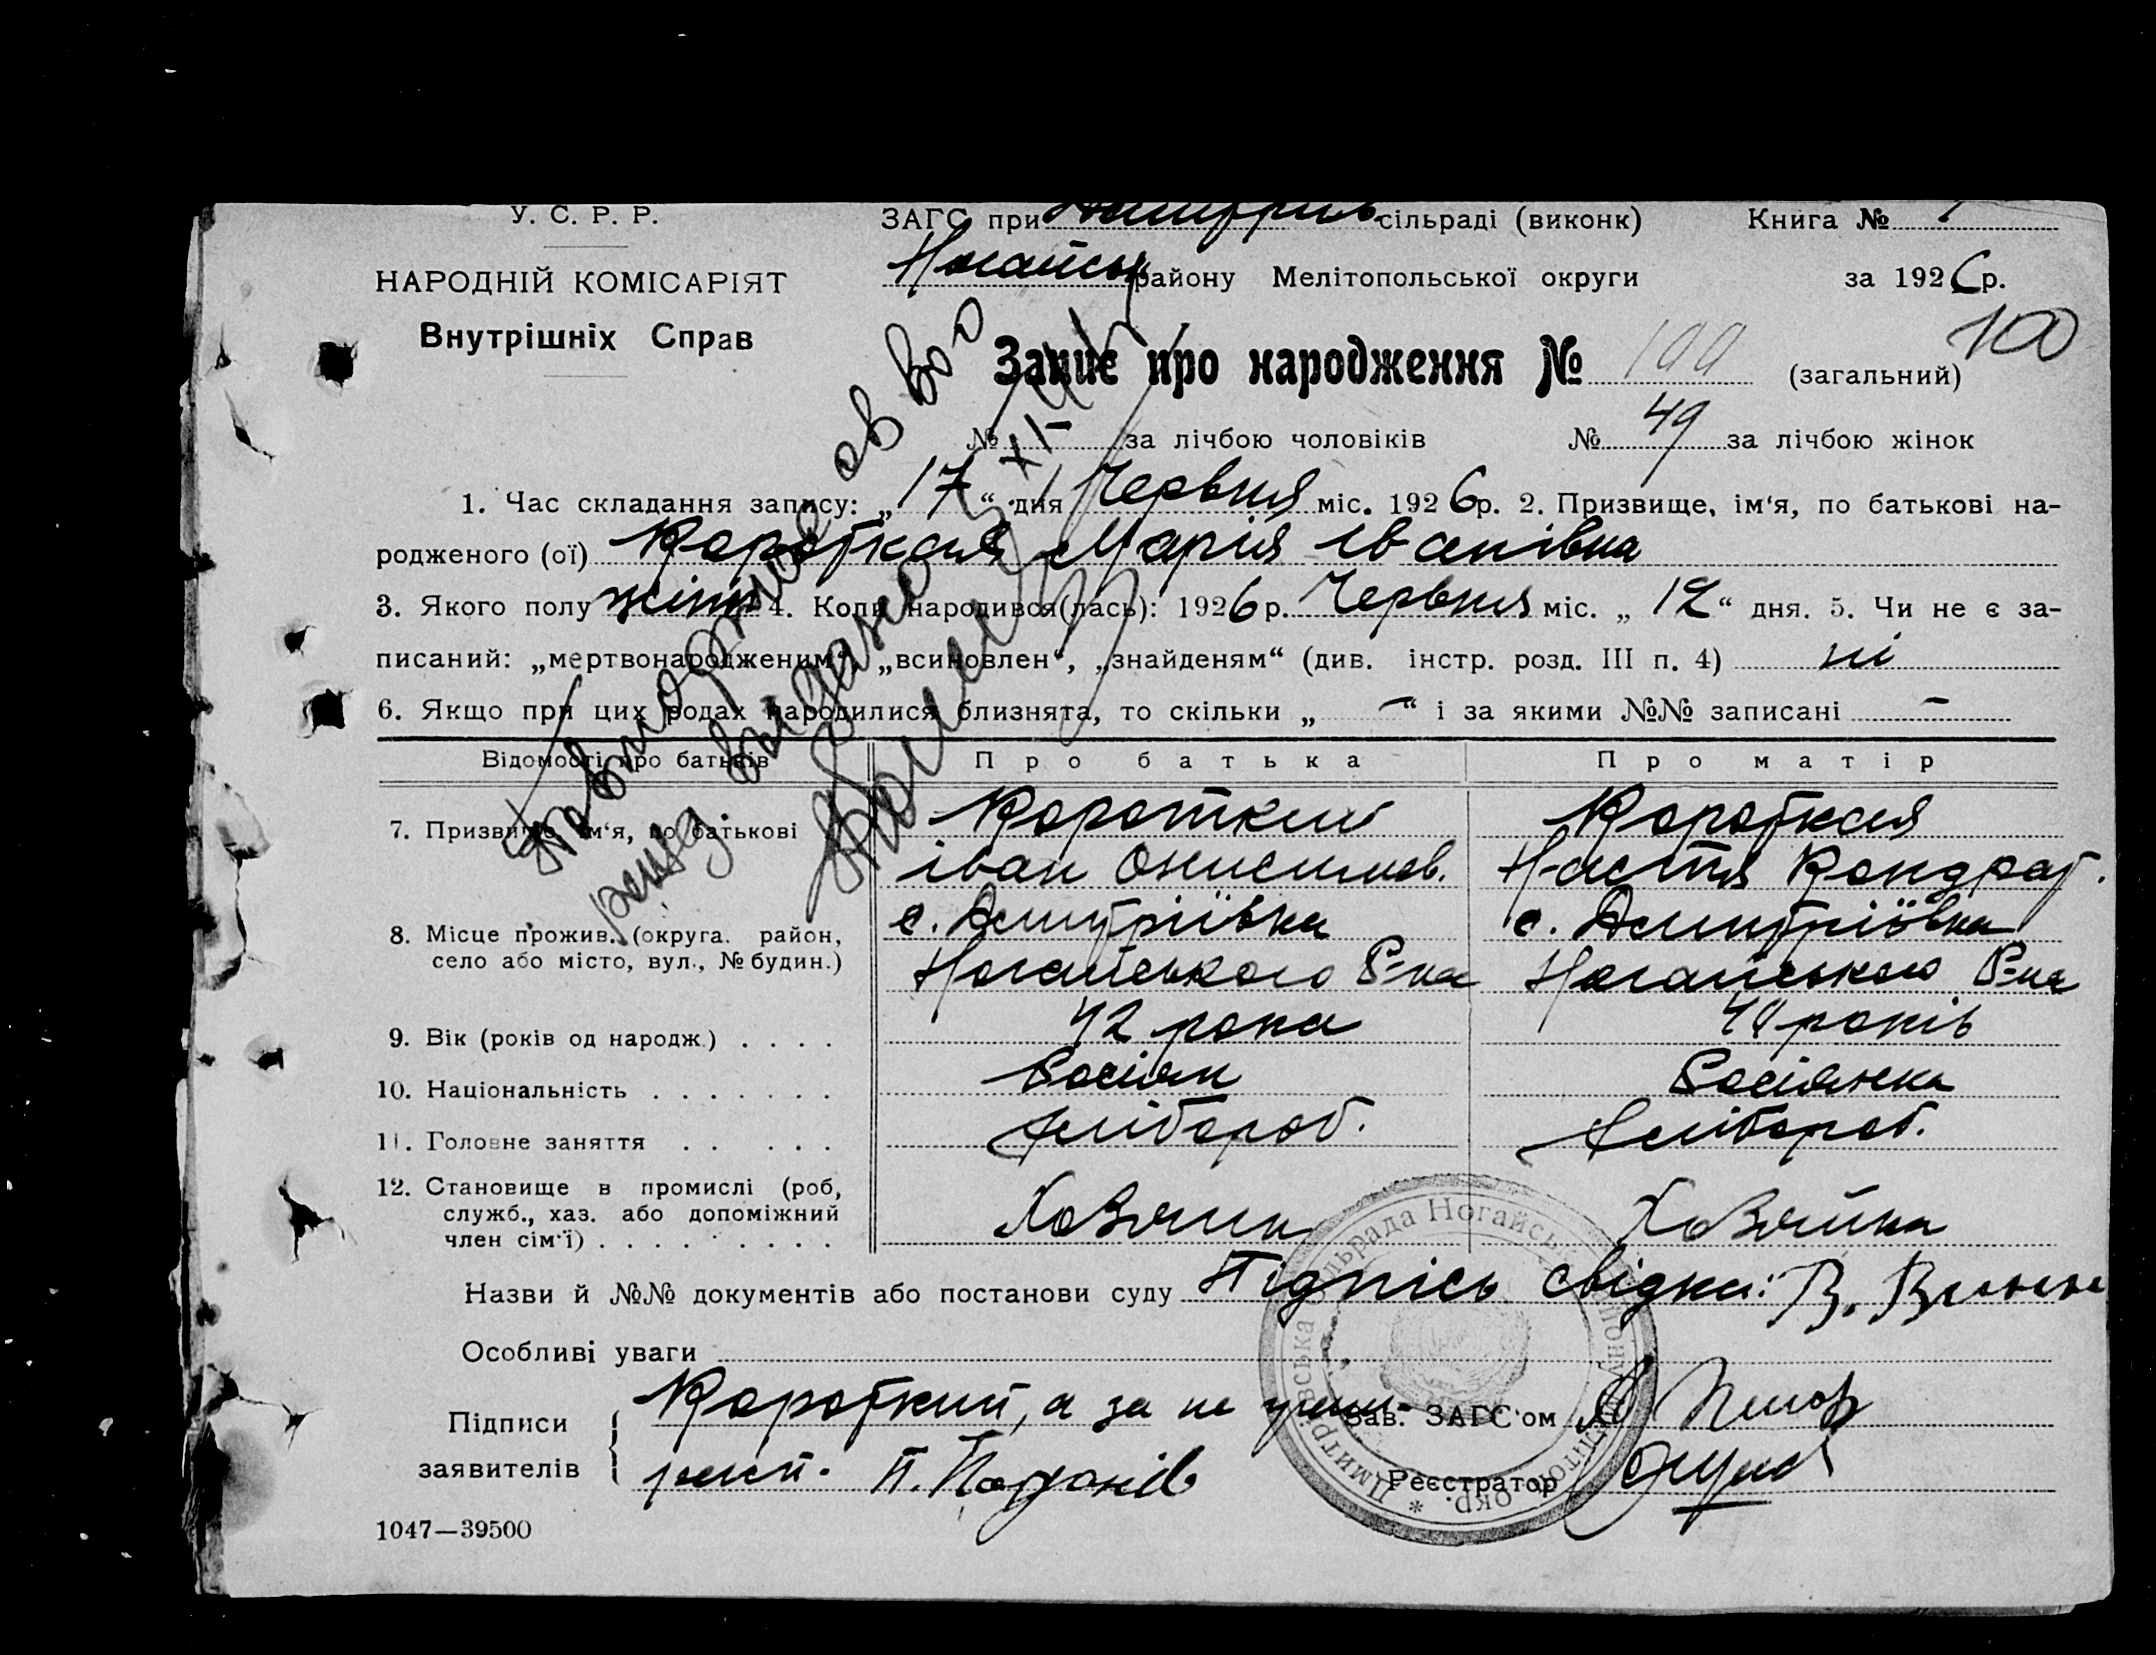 У. С. Р. Р.
ЗАГС при Дмитрів. сільраді (виконк) Книга №
НАРОДНІЙ КОМІСАРІЯТ
Внутрішніх Справ
Ногайськ району Мелітопольської округи за 1926 р.
100
Запис про народження № (загальний)
№ — за лічбою чоловіків № 49 за лічбою жінок
1. Час складання запису: „17“ дня Червня міс. 1926 р. 2. Призвище, ім‘я, по батькові на-
родженого (ої) Короткая Марія Іванівна
3. Якого полу жіноч 4. Коли народився(лась): 1926 р. Червня міс. „12“ дня. 5. Чи не є за-
писаний: „мертвонародженим“, „всиновлен“, „знайденям“ (див. інстр. розд. III п. 4) ні
6. Якщо при цих родах народилися близнята, то скільки „ — “ і за якими №№ записані —
Відомості про батьків Про батька Про матір
7. Призвище, ім‘я, по батькові Короткий Короткая
Іван Онисимов. Настя Кондрат.
8. Місце прожив. (округа. район, с. Дмитріївка с. Дмитріївка
село або місто, вул., № будин.) Ногайського Р-на Ногайського Р-на
9. Вік (років од народж.) 42 рока 40 років
10. Національність Росіян Росіянка
11. Головне заняття хлібороб. хлібороб.
12. Становище в промислі (роб,
служб., хаз. або допоміжний
член сім‘ї) Хозяин Хозяйка
Назви й №№ документів або постанови суду Підпісь свідка: В.
Особливі уваги
Підписи
заявителів
Короткий, а за не
П.
Зав. ЗАГС‘ом
Реєстратор
1047—39500
Повторное св во
выдано